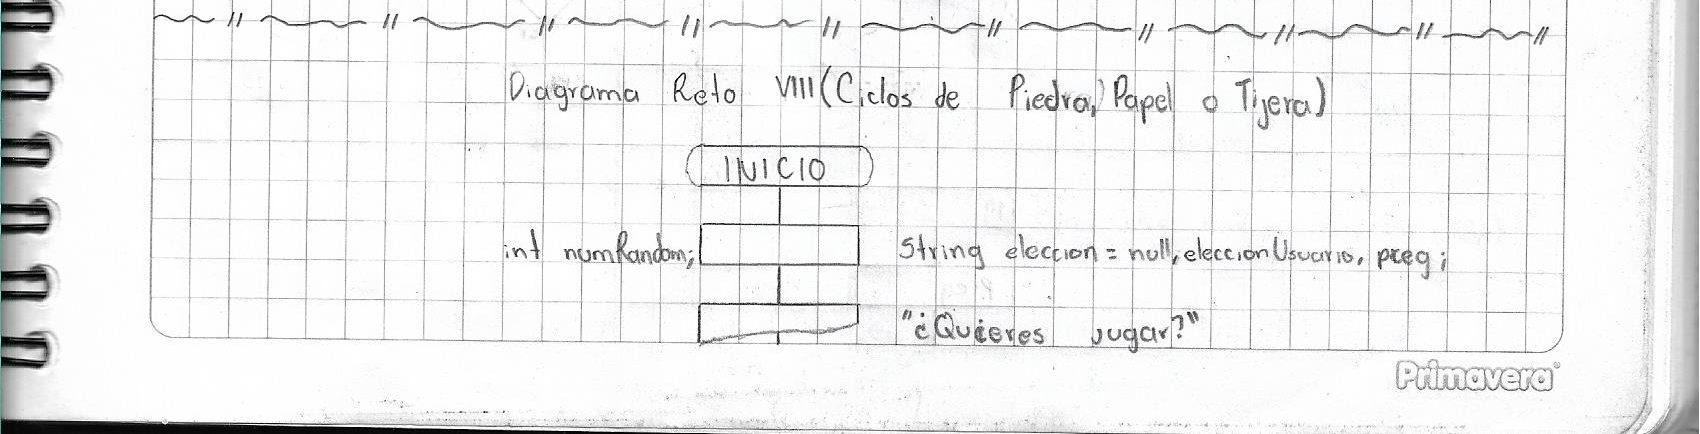 Diagrama Reto VIII (Ciclos de Piedra, Papel o Tijera)
INICIO
int numRandom; String eleccion = null, eleccionUsuario, preg;
"¿Quieres Jugar?"
Primavera